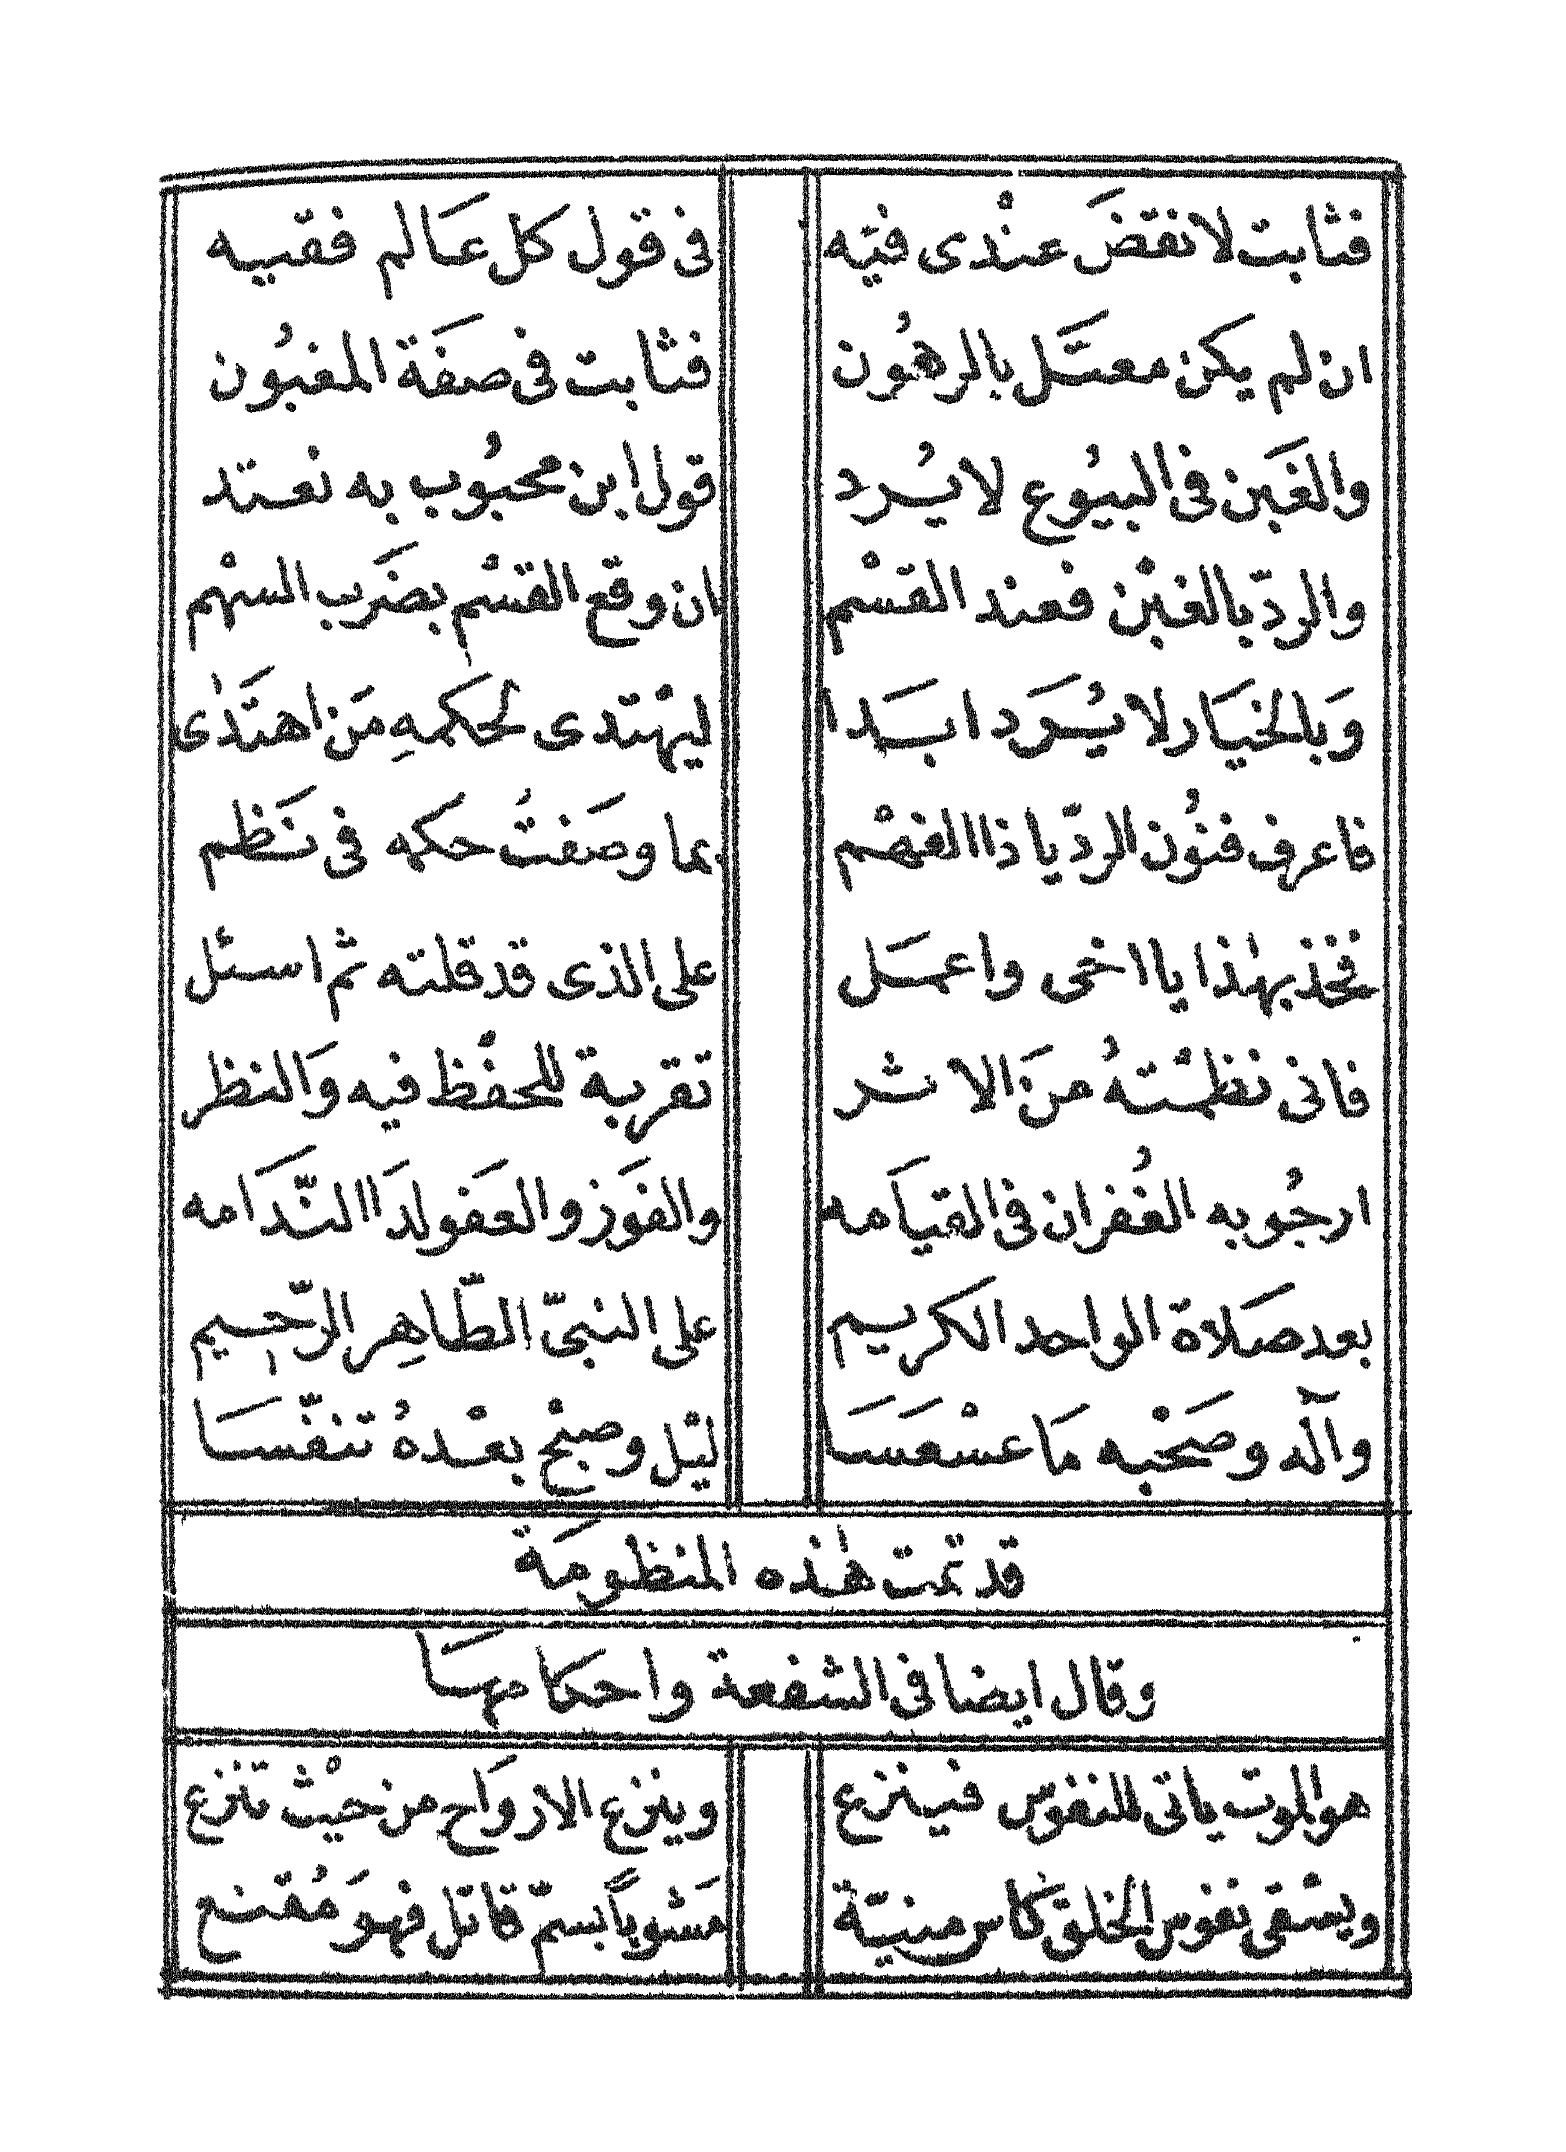 فثابت لانقض عنْدى فيّه في قول كل عَالم فقيه
ان لم يكن معتَل بالرهُون فثابت في صفَة المغبُون
والغَبن في البيُوع لا يُرد قول ابن محبُوب به نعتد
والردّ بالغبْن فعند القسْم ان وقع القسْم بضَرب السهْم
وَبالخيَار لا يُرَد ابَدا ليهْتدى لحكمهِ مَن اهتَدٰى
فاعرف فنُون الردّ يا ذا الفهْم بما وصَفتُ حكمه في نَظم
فخذ بهٰذا يا اخى واعمَل على الذى قد قلته ثم اسئل
فانى نظمْتهُ منَ الاثر تقريبة للحفْظ فيه وَالنظر
ارجُو به الغُفران في القيَامه والفَوز والعَفو لدَا النّدَامه
بعد صَلاة الواحد الكريم على النبىّ الطّاهِر الرّحيم
وآله وصَحْبه مَا عسْعَسَا ليْل وصبْح بعْدهُ تنفّسَا
قد تمت هٰذه المنظومَة
وقال ايضا في الشفعة واحكامهَا
هو الموت ياتى للنفوس فينزع وينزع الارْوَاح من حيْث تنزع
ويسْقى نفوس الخلق كَاس منيّة مَشوباً بسمّ قاتل فهوَ مُقنع